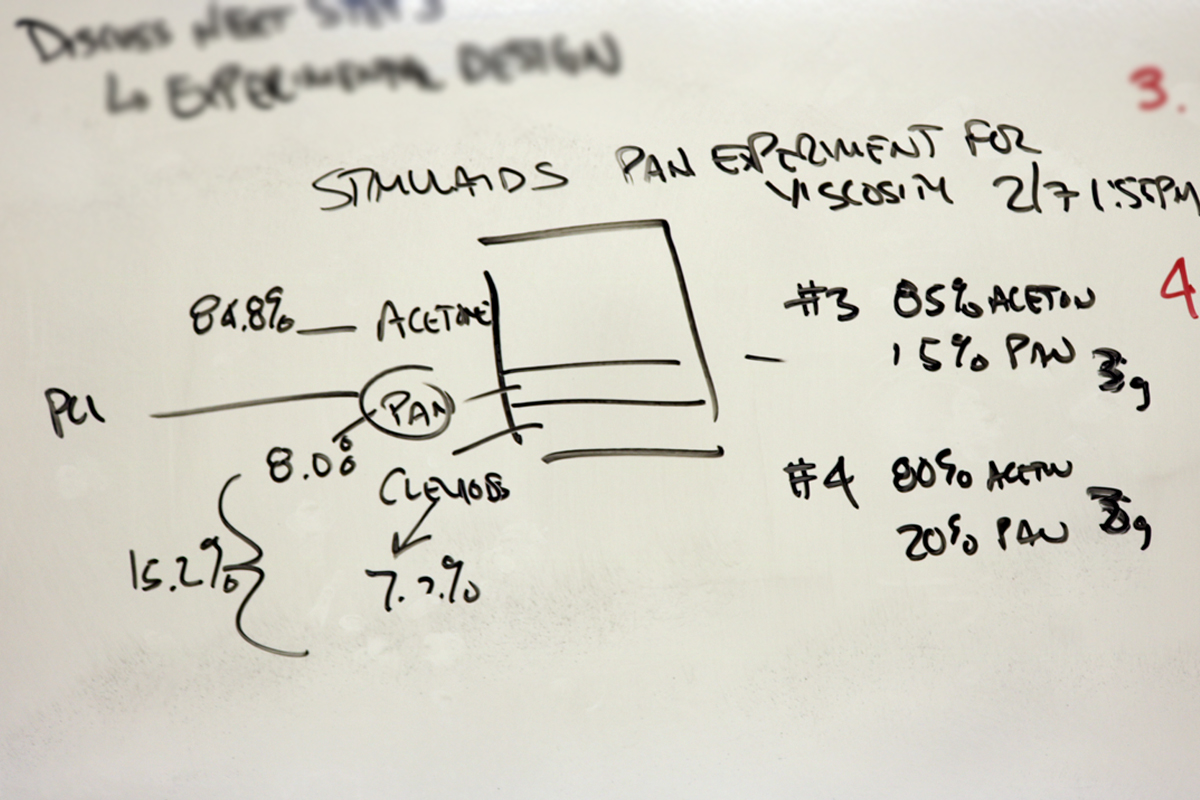 DISCUSS NEXT STEPS
↳ EXPERIMENTAL DESIGN
3.
STIMULAIDS PAN EXPERIMENT FOR
VISCOSITY 2/7 1:55PM
84.8% ACETONE
PCL
PAN
8.0%
15.2%
7.2%
#3 85% ACETON
15% PAN 3g
4
#4 80% ACETON
20% PAN 3g